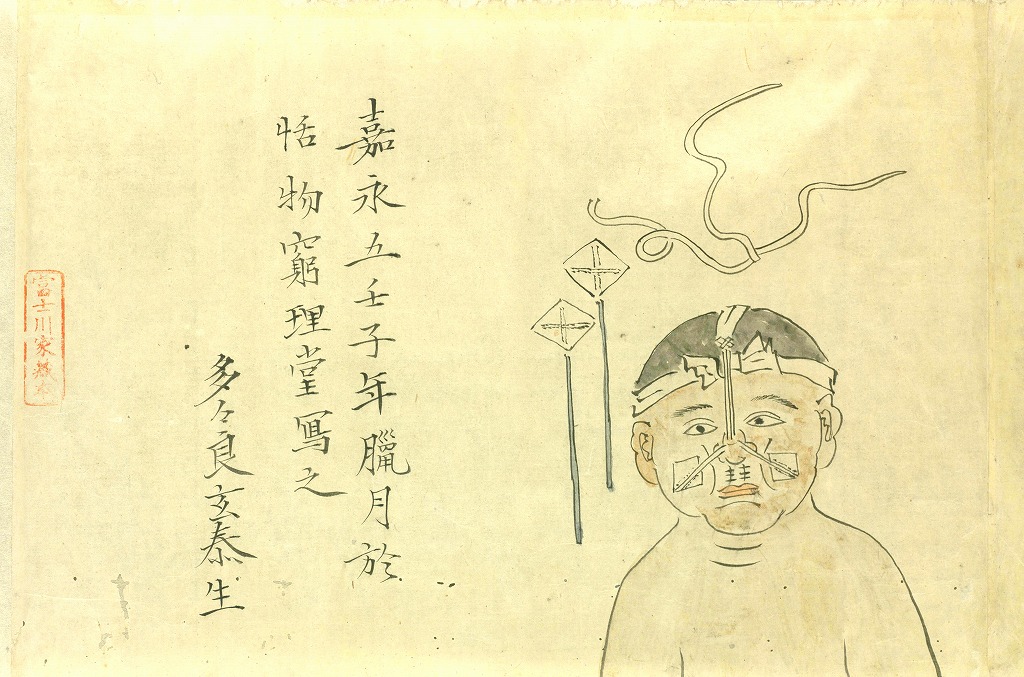 嘉永五壬子年臘月於
恬物窮理堂寫之
多々良玄泰生
富士川家藏本